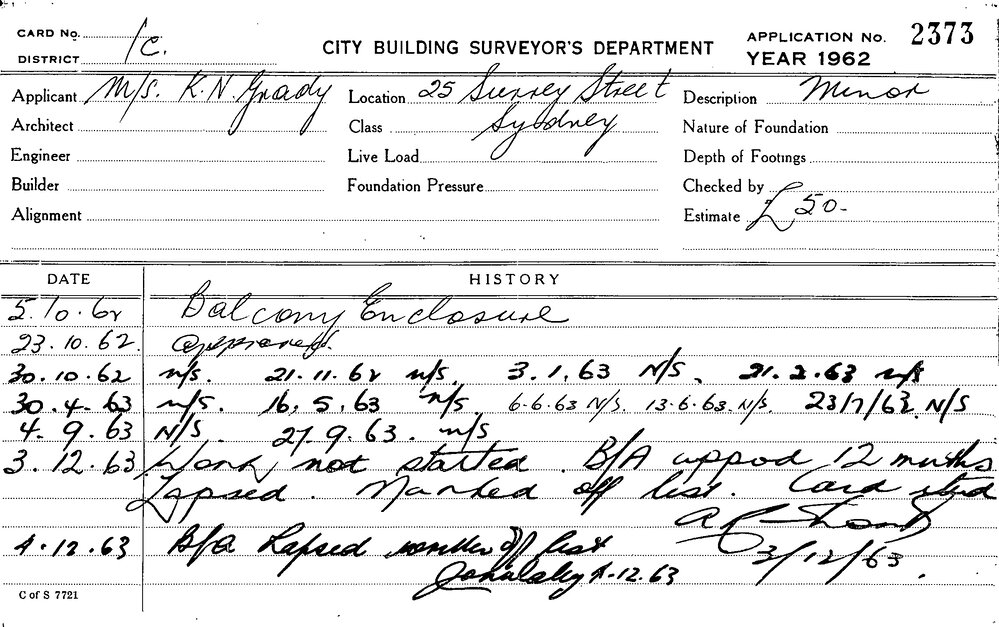 CARD No.
DISTRICT 1C.
CITY BUILDING SURVEYOR'S DEPARTMENT
APPLICATION No. 2373
YEAR 1962
Applicant M/s. K.N. Grady Location 25 Surrey Street Description Minor
Architect Class Sydney Nature of Foundation
Engineer Live Load Depth of Footings
Builder Foundation Pressure Checked by
Alignment Estimate £50-
DATE HISTORY
5.10.62 Balcony Enclosure
23.10.62. approved.
30.10.62 n/s. 21.11.62 n/s. 3.1.63 N/S. 21.2.63 n/s
30.4.63 n/s. 16.5.63 n/s 6.6.63 N/S. 13.6.63. N/S. 23/7/63 N/S
4.9.63 N/S. 27.9.63. n/s
3.12.63 Work not started. B/A appod 12 months
Lapsed. Marked off list. Card
3/12/63.
4.12.63 B/A Lapsed off list
4.12.63
C of S 7721